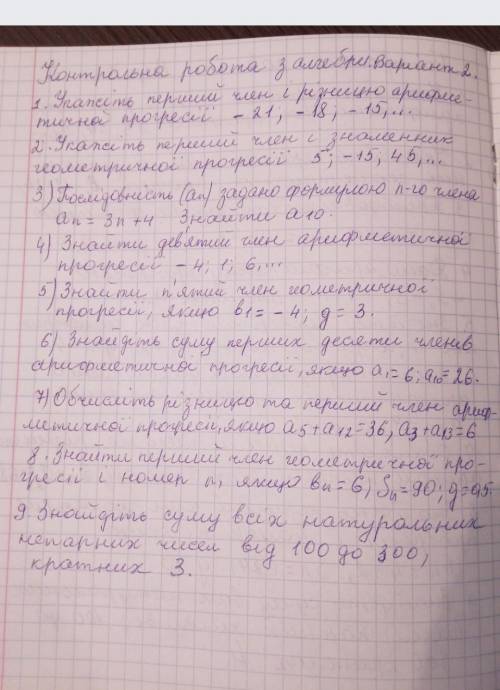 Контрольна робота з алгебри. Варіант 2.
1. Укажіть перший член і різницю арифме-
тичної прогресії -21; -18; -15,...
2. Укажіть перший член і знаменник
геометричної прогресії 5; -15, 45,...
3) Послідовність (an) задано формулою n-го члена
an = 3n+4 Знайти a10.
4) Знайти дев'ятий член арифметичної
прогресії -4; 1; 6,...
5) Знайти п'ятий член геометричної
прогресії, якщо b1 = -4; g = 3.
6) Знайдіть суму перших десяти членів
арифметичної прогресії, якщо a1 = 6; a10 = 26.
7) Обчисліть різницю та перший член ариф-
метичної прогресії, якщо a5+a12=36, a3+a13=6
8. Знайти перший член геометричної про-
гресії і номер n, якщо bn = 6; Sn = 90; g = 0,5
9. Знайдіть суму всіх натуральних
непарних чисел від 100 до 300,
кратних 3.